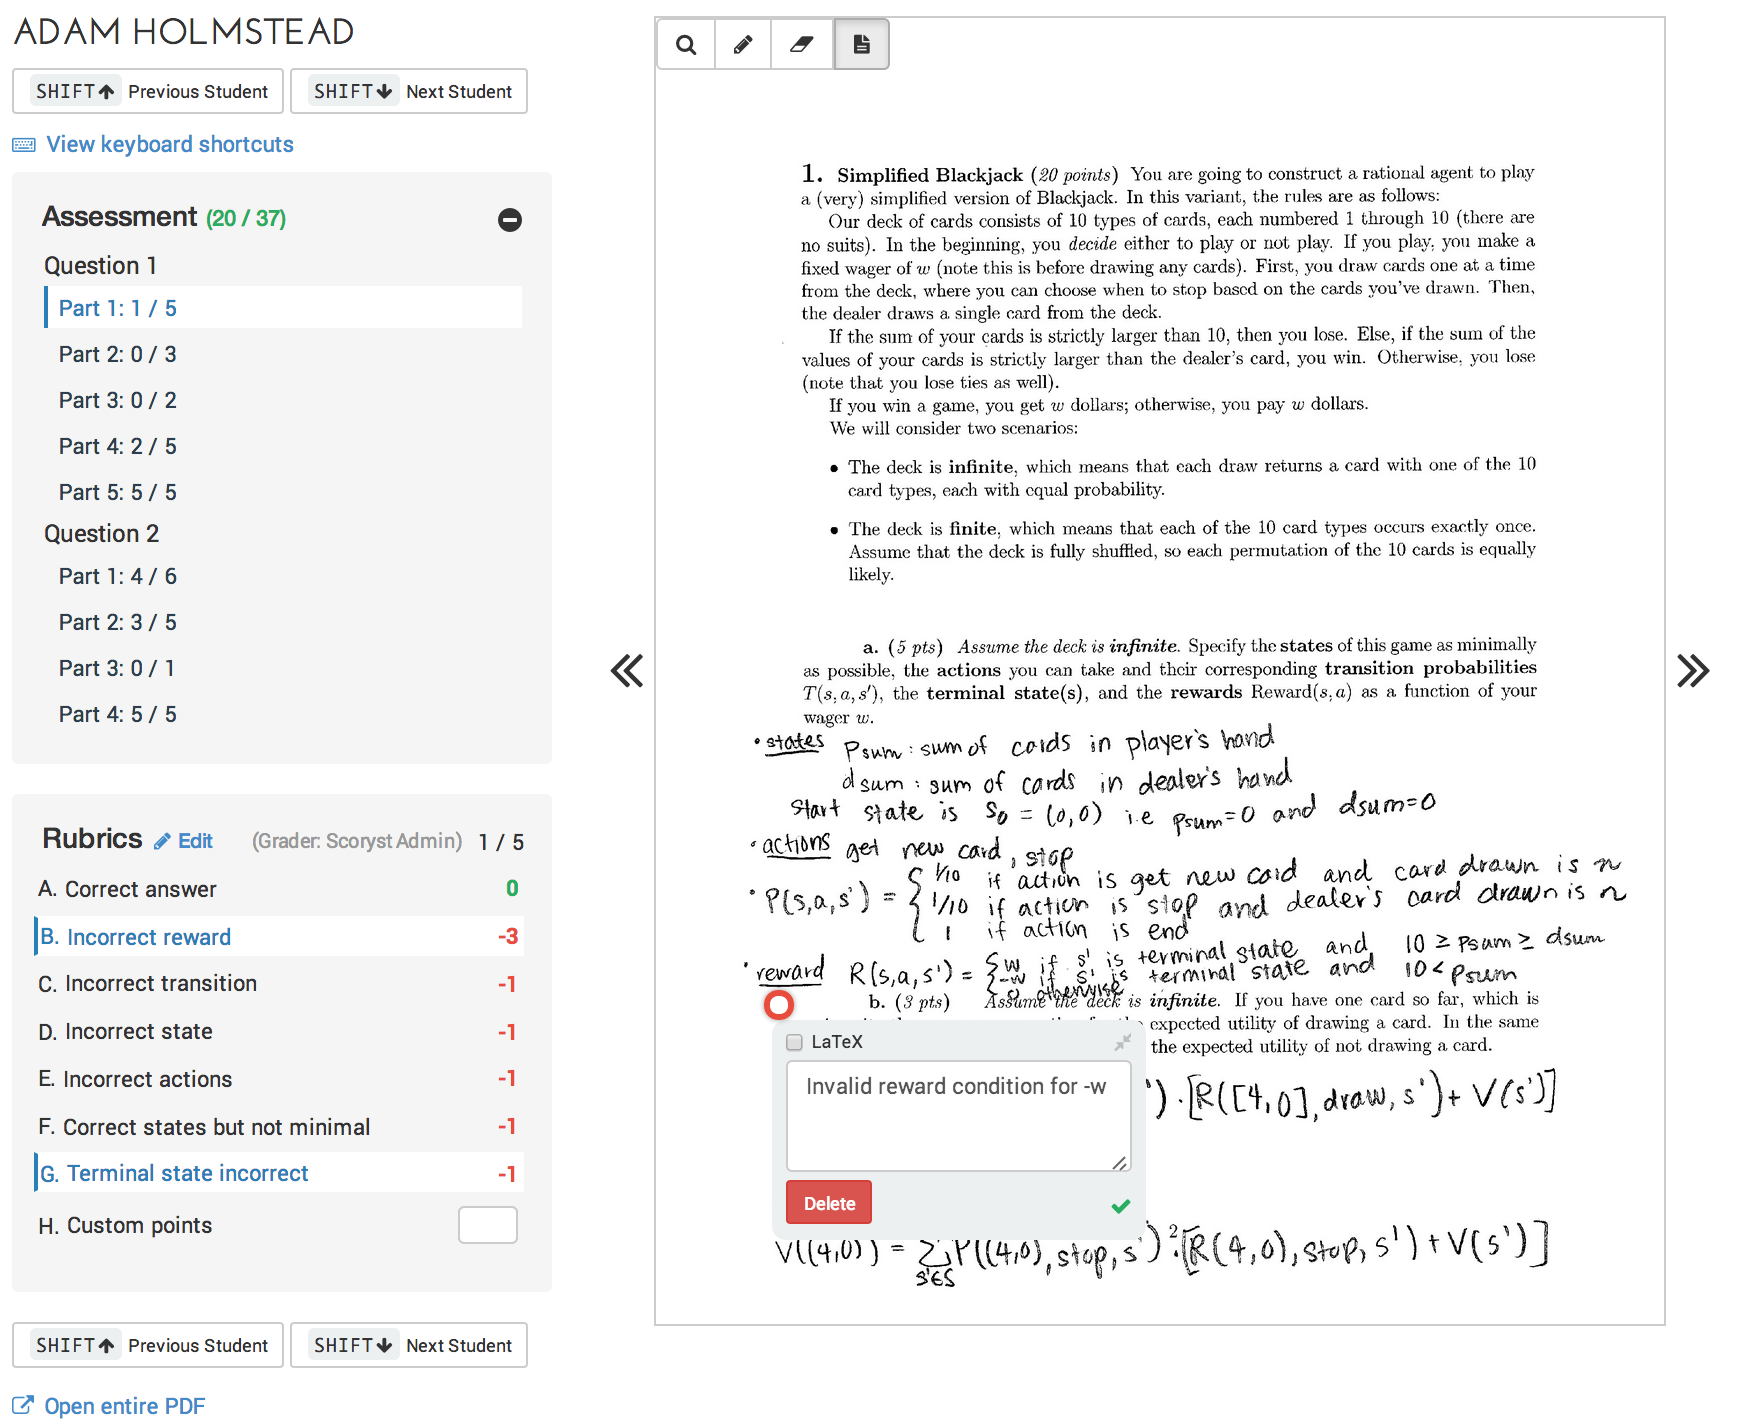 ADAM HOLMSTEAD
SHIFT Previous Student
SHIFT Next Student
View keyboard shortcuts
Assessment (20 / 37)
Question 1
Part 1: 1 / 5
Part 2: 0 / 3
Part 3: 0 / 2
Part 4: 2 / 5
Part 5: 5 / 5
Question 2
Part 1: 4 / 6
Part 2: 3 / 5
Part 3: 0 / 1
Part 4: 5 / 5
Rubrics Edit (Grader: Scoryst Admin) 1 / 5
A. Correct answer 0
B. Incorrect reward -3
C. Incorrect transition -1
D. Incorrect state -1
E. Incorrect actions -1
F. Correct states but not minimal -1
G. Terminal state incorrect -1
H. Custom points
SHIFT Previous Student
SHIFT Next Student
Open entire PDF
1. Simplified Blackjack (20 points) You are going to construct a rational agent to play
a (very) simplified version of Blackjack. In this variant, the rules are as follows:
Our deck of cards consists of 10 types of cards, each numbered 1 through 10 (there are
no suits). In the beginning, you decide either to play or not play. If you play, you make a
fixed wager of w (note this is before drawing any cards). First, you draw cards one at a time
from the deck, where you can choose when to stop based on the cards you've drawn. Then,
the dealer draws a single card from the deck.
If the sum of your cards is strictly larger than 10, then you lose. Else, if the sum of the
values of your cards is strictly larger than the dealer's card, you win. Otherwise, you lose
(note that you lose ties as well).
If you win a game, you get w dollars; otherwise, you pay w dollars.
We will consider two scenarios:
• The deck is infinite, which means that each draw returns a card with one of the 10
card types, each with equal probability.
• The deck is finite, which means that each of the 10 card types occurs exactly once.
Assume that the deck is fully shuffled, so each permutation of the 10 cards is equally
likely.
a. (5 pts) Assume the deck is infinite. Specify the states of this game as minimally
as possible, the actions you can take and their corresponding transition probabilities
T(s, a, s′), the terminal state(s), and the rewards Reward(s, a) as a function of your
wager w.
• states Psum : sum of cards in player's hand
dsum : sum of cards in dealer's hand
Start state is S0 = (0,0) i.e psum=0 and dsum=0
• actions get new card, stop
• P(s,a,s') = { 1/10 if action is get new card and card drawn is n
1/10 if action is stop and dealer's card drawn is n
1 if action is end
• reward R(s,a,s') = { w if s' is terminal state and 10 ≥ psum ≥ dsum
-w if s' is terminal state and 10 < psum
0 otherwise
b. (3 pts) Assume the deck is infinite. If you have one card so far, which is
expected utility of drawing a card. In the same
the expected utility of not drawing a card.
LaTeX
Invalid reward condition for -w
Delete
') · [R([4,0], draw, s') + V(s')]
V((4,0)) = Σ P((4,0), stop, s') [R(4,0), stop, s') + V(s')]
s'∈S